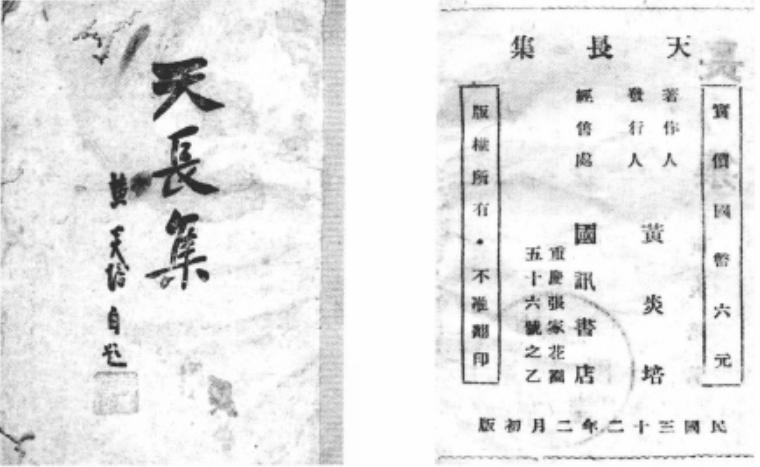 天長集
黃炎培自題
天長集
實價國幣六元
著作人
發行人
黃炎培
經售處
國訊書店
重慶張家花園
五十六號之乙
版權所有·不准翻印
民國三十二年二月初版